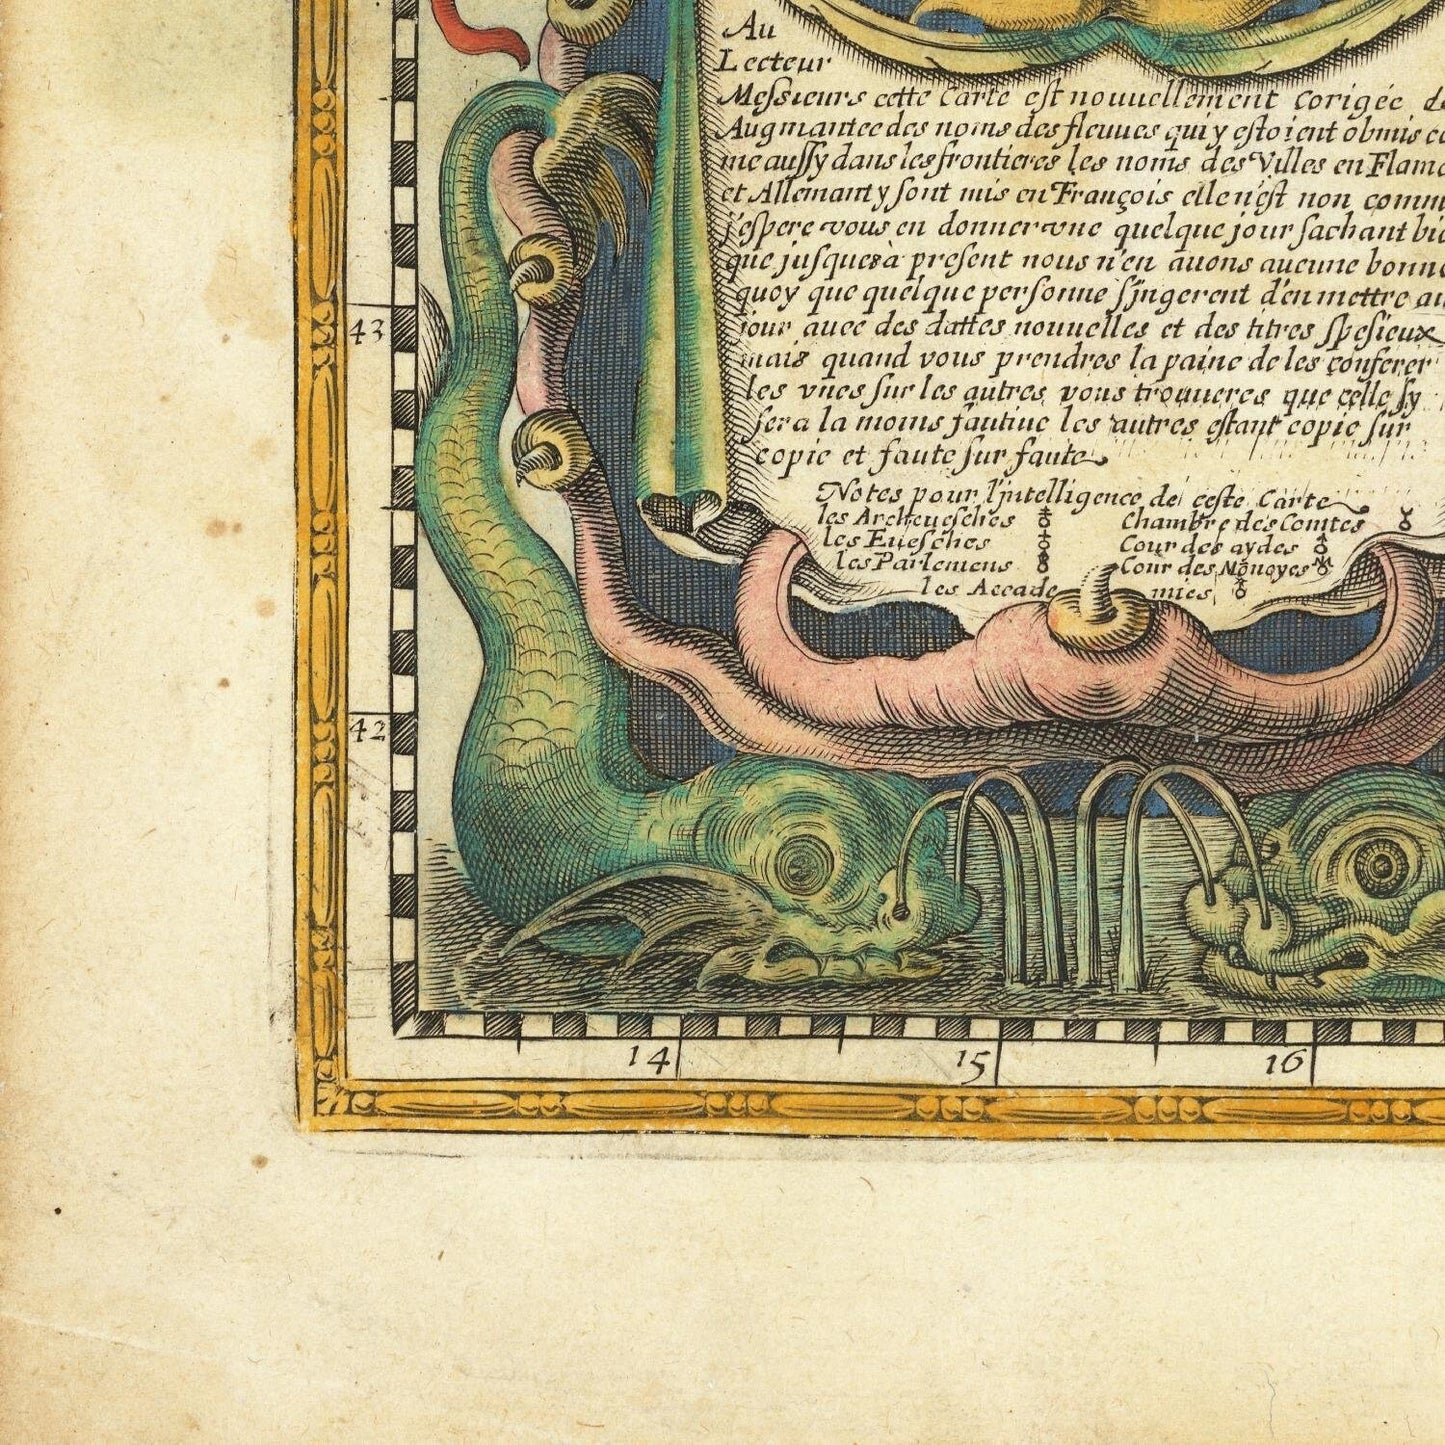 Au
Lecteur
Messieurs cette Carte est nouuellement Corigée
Augmantee des noms des fleuues qui y estoient obmis
me aussy dans les frontieres les noms des Villes en
et Allemant y sont mis en François elle n'est non
j'espere vous en donner vne quelque jour sachant
que jusques à present nous n'en auons aucune bonne
quoy que quelque personne s'jngerent d'en mettre au
jour auec des dattes nouuelles et des titres spesieux
mais quand vous prendres la paine de les conferer
les vnes sur les autres vous trouueres que celle sy
sera la moins fautiue les autres estant copie sur
copie et faute sur faute
Notes pour l'jntelligence de ceste Carte
les Archeuesches Chambre des Comtes
les Euesches Cour des aydes
les Parlemens Cour des Monoyes
les Accademies
43
42
14 15 16